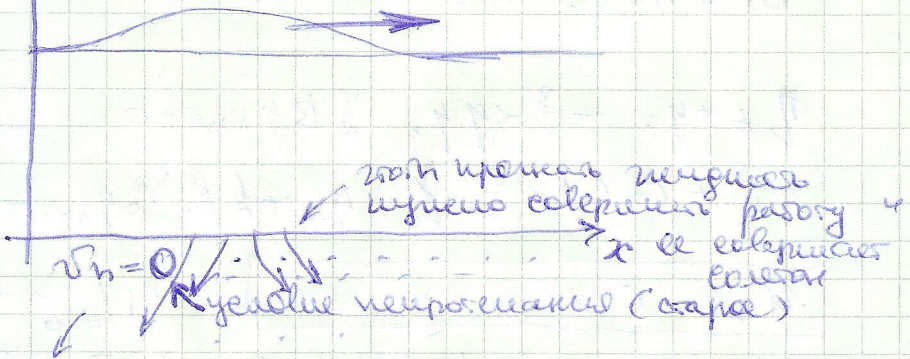 чтоб прокачать жидкость
нужно совершить работу и
x ее совершает
солитон
vn = 0
условие непротекания (старое)